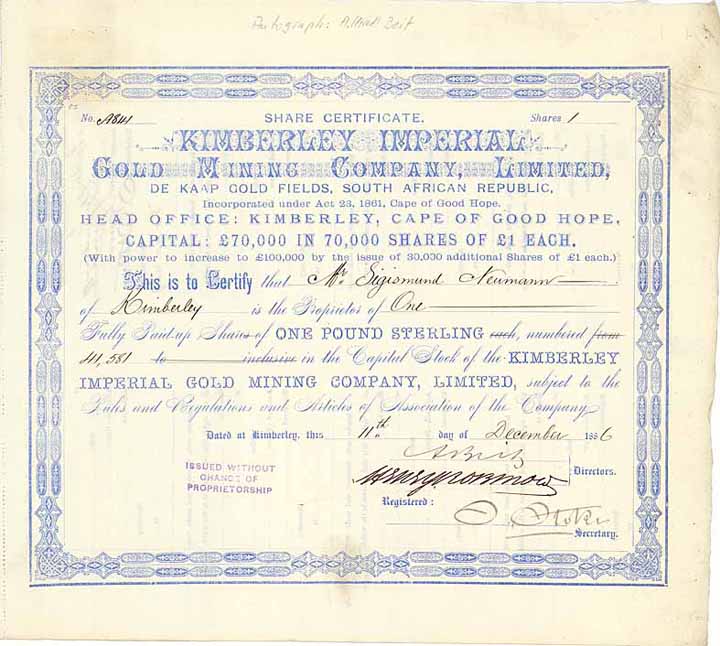 Autograph: Alfred Beit
No. A841
SHARE CERTIFICATE.
Shares 1
KIMBERLEY IMPERIAL
GOLD MINING COMPANY, LIMITED,
DE KAAP GOLD FIELDS, SOUTH AFRICAN REPUBLIC,
Incorporated under Act 23, 1861, Cape of Good Hope.
HEAD OFFICE: KIMBERLEY, CAPE OF GOOD HOPE,
CAPITAL: £70,000 IN 70,000 SHARES OF £1 EACH.
(With power to increase to £100,000 by the issue of 30,000 additional Shares of £1 each.)
This is to Certify that Mr. Sigismund Neumann
of Kimberley is the Proprietor of One
Fully Paid-up Shares of ONE POUND STERLING each, numbered from
41,581 to inclusive in the Capital Stock of the KIMBERLEY
IMPERIAL GOLD MINING COMPANY, LIMITED, subject to the
Rules and Regulations and Articles of Association of the Company
Dated at Kimberley, this 11th. day of December 1886
ABeit
Directors.
ISSUED WITHOUT
CHANGE OF
PROPRIETORSHIP
Registered:
Secretary.